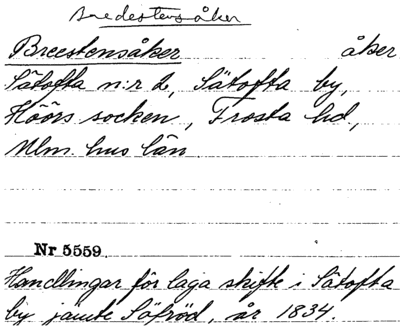 Bredestensåker
Breestensåker åker
Sätofta n:r 2, Sätofta by,
Höörs socken, Frosta hd,
Mlm. hus län
Nr 5559.
Handlingar för laga skifte i Sätofta
by jämte Säfröd, år 1834.